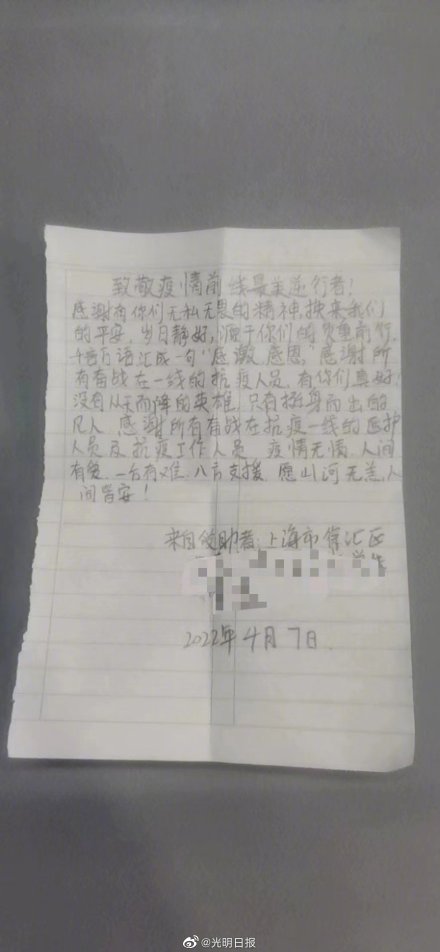 致敬疫情前线最美逆行者！
感谢有你们无私无畏的精神，换来我们
的平安，岁月静好，源于你们的负重前行，
千言万语汇成一句"感激，感恩"感谢所
有奋战在一线的抗疫人员，有你们真好！
没有从天而降的英雄，只有挺身而出的
凡人，感谢所有奋战在抗疫一线的医护
人员及抗疫工作人员，疫情无情，人间
有爱，一方有难，八方支援，愿山河无恙，人
间皆安！
来自 者：上海市徐汇区
2022年4月7日
@光明日报